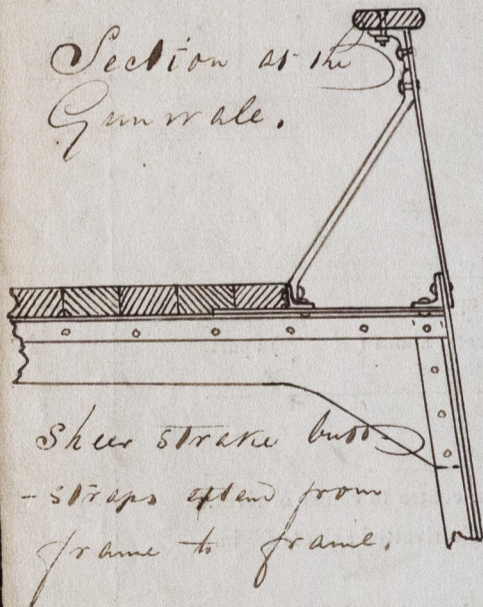 Section at the
Gunwale.
Sheer strake butt
-straps extend from
frame to frame.